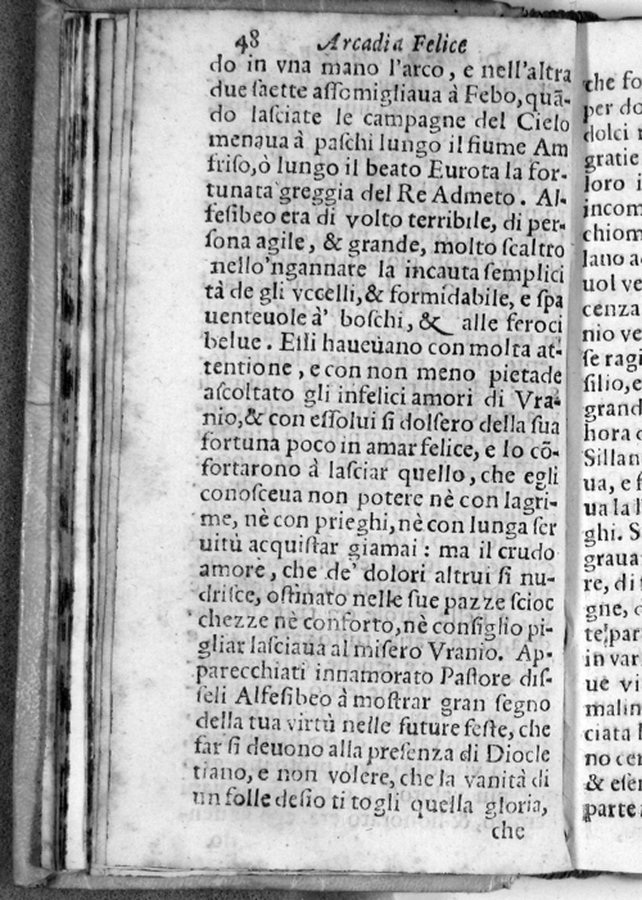 48 Arcadia Felice
do in vna mano l'arco, e nell'altra
due ſaette aſſomigliaua à Febo, quā-
do laſciate le campagne del Cielo
menaua à paſchi lungo il fiume Am
friſo, ò lungo il beato Eurota la for-
tunata greggia del Re Admeto. Al-
feſibeo era di volto terribile, di per-
ſona agile, & grande, molto ſcaltro
nello'ngannare la incauta ſemplici
tà de gli vccelli, & formidabile, e ſpa
uenteuole à' boſchi, & alle feroci
belue. Eſſi haueuano con molta at-
tentione, e con non meno pietade
aſcoltato gli infelici amori di Vra-
nio, & con eſſolui ſi dolſero della ſua
fortuna poco in amar felice, e lo cō-
fortarono à laſciar quello, che egli
conoſceua non potere nè con lagri-
me, nè con prieghi, nè con lunga ſer
uitù acquiſtar giamai: ma il crudo
amore, che de' dolori altrui ſi nu-
driſce, oſtinato nelle ſue pazze ſcioc
chezze nè conforto, nè conſiglio pi-
gliar laſciaua al miſero Vranio. Ap-
parecchiati innamorato Paſtore diſ-
ſeli Alfeſibeo à moſtrar gran ſegno
della tua virtù nelle future feſte, che
far ſi deuono alla preſenza di Diocle
tiano, e non volere, che la vanità di
un folle deſio ti togli quella gloria,
che
che fo
per do
dolci
gratie
loro i
incom
chiom
lano a
uol ve
cenza
nio ve
ſe ragi
ſilio, e
grand
hora
Sillan
ua, e
ua la l
ghi. S
graua
re, di
gne,
te, par
in var
ue vi
malin
ciata
no cer
& eſer
parte